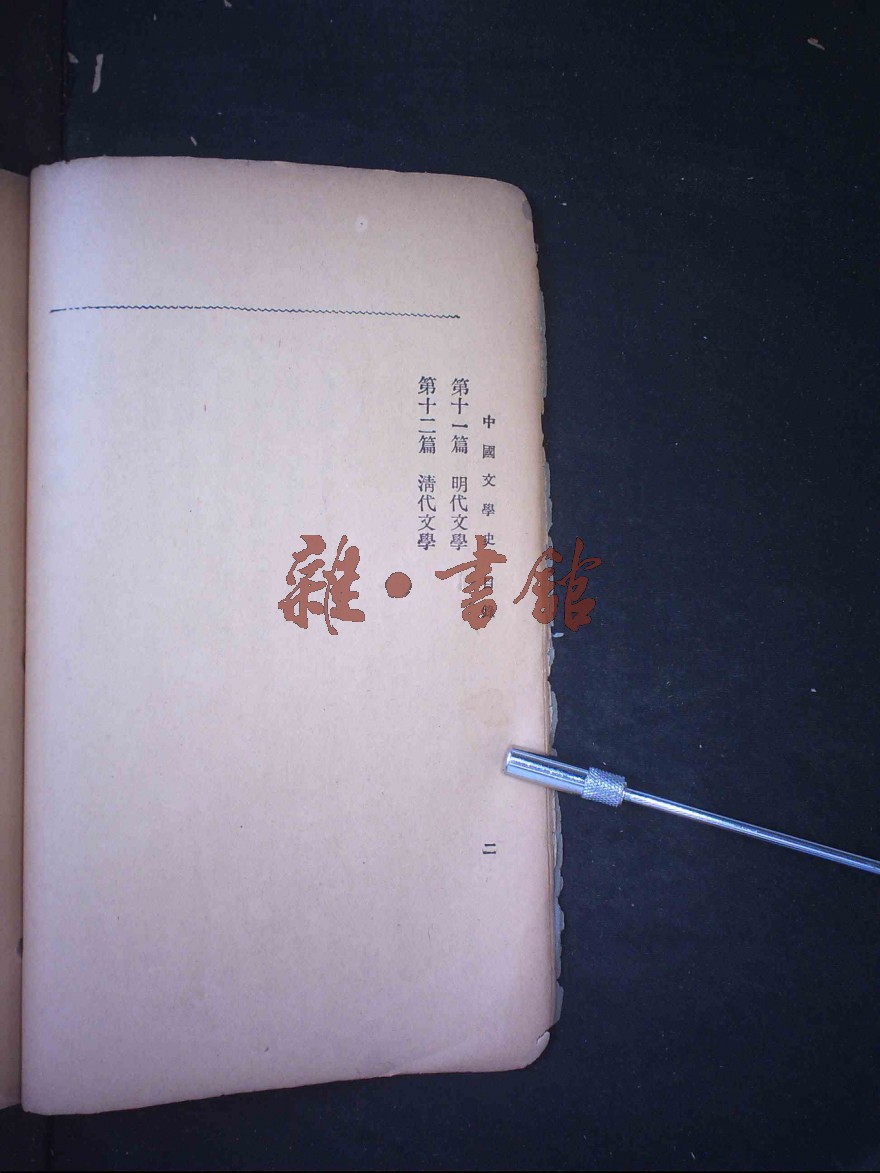 中國文學史目錄
二
第十一篇　明代文學
第十二篇　淸代文學
雜·書館